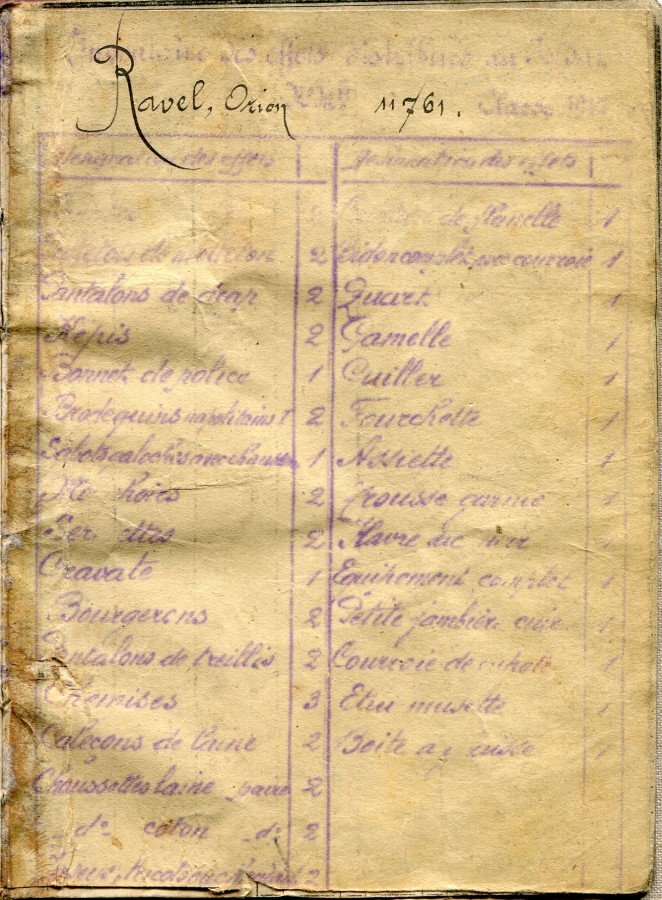 Inventaire des effets distribués au
Ravel, Orion 11761.
Classe
Désignation des effets
2
de molleton 2
Pantalons de drap 2
Képis 2
Bonnet de police 1
Brodequins napolitains 2
Sabots galoches avec chaussons 1
2
2
Cravate 1
Bourgerons 2
Pantalons de treillis 2
Chemises 3
Caleçons de laine 2
Chaussettes laine paire 2
do coton do 2
2
Désignation des effets
de flanelle 1
Bidon complet avec courroie 1
Quart 1
Gamelle 1
Cuiller 1
Fourchette 1
Assiette 1
Trousse garnie 1
Havre sac 1
Equipement complet 1
Petite jambière cuir 1
Courroie de 1
Etui musette 1
Boite à 1